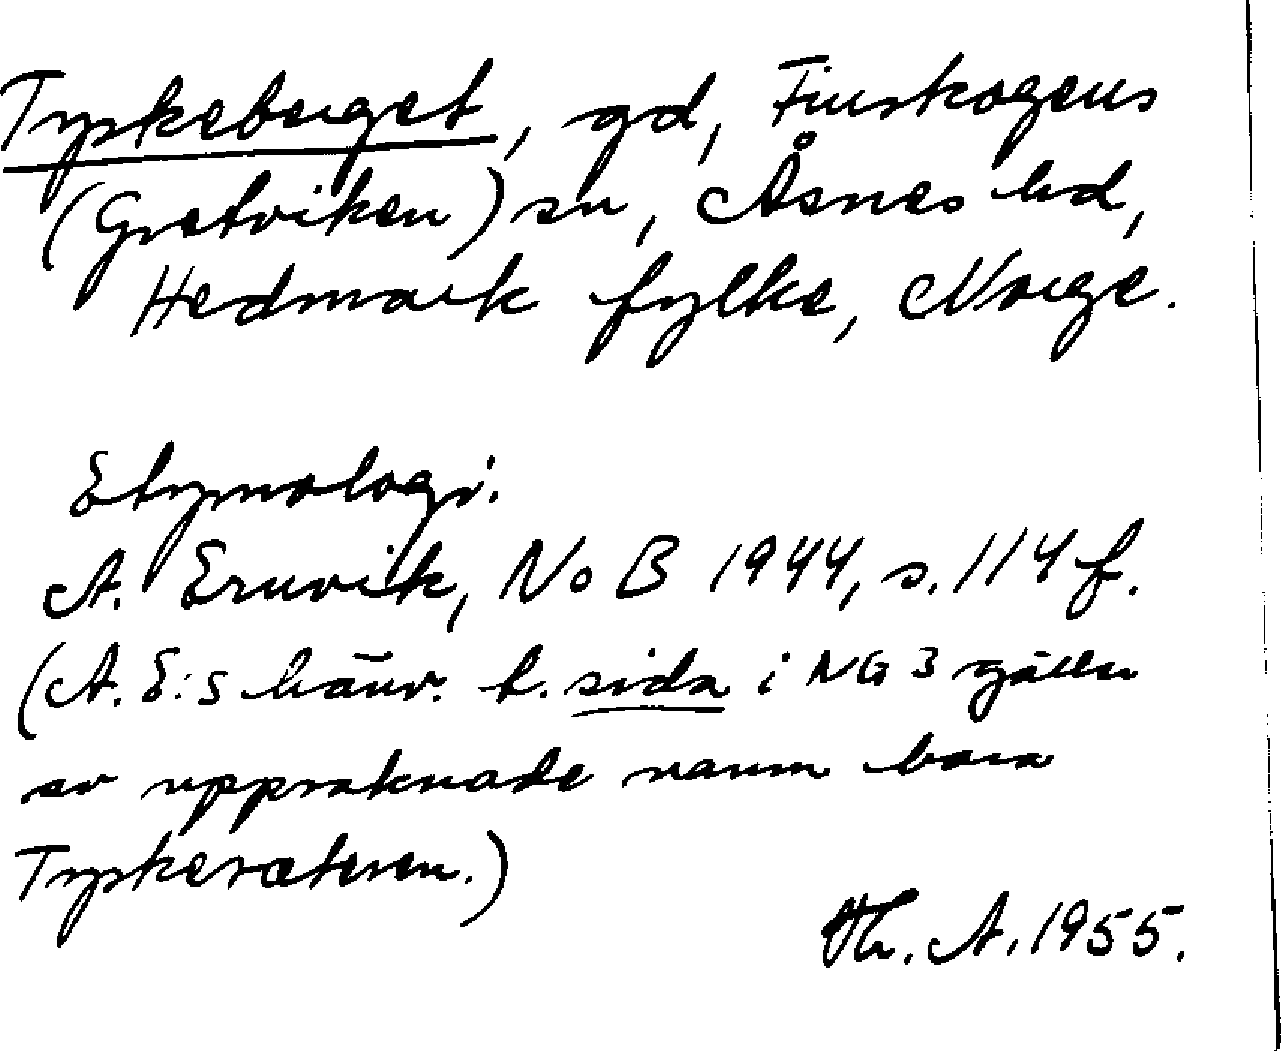 Tyskeberget, gd, Finskogens
(Gretviken) sn, Åsnes hd,
Hedmark fylke, Norge.
Etymologi:
A. Ernvik, NoB 1944, s. 114 f.
(A. E:s hänv. t. sida i NG 3 gäller
av uppräknade namn bara
Tyskesæteren.)
Th. A. 1955.